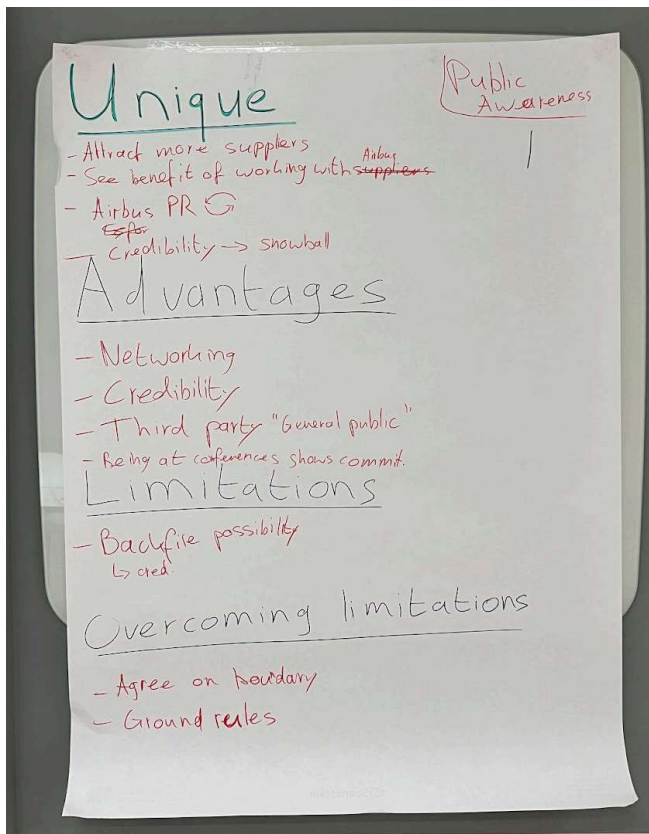 Unique
Public
Awareness
- Attract more suppliers
1
- See benefit of working with suppliers Airbus
- Airbus PR
- Credibility → snowball
Advantages
- Networking
- Credibility
- Third party "General public"
- Being at conferences shows commit.
Limitations
- Backfire possibility
↳ cred.
Overcoming limitations
- Agree on boundary
- Ground rules